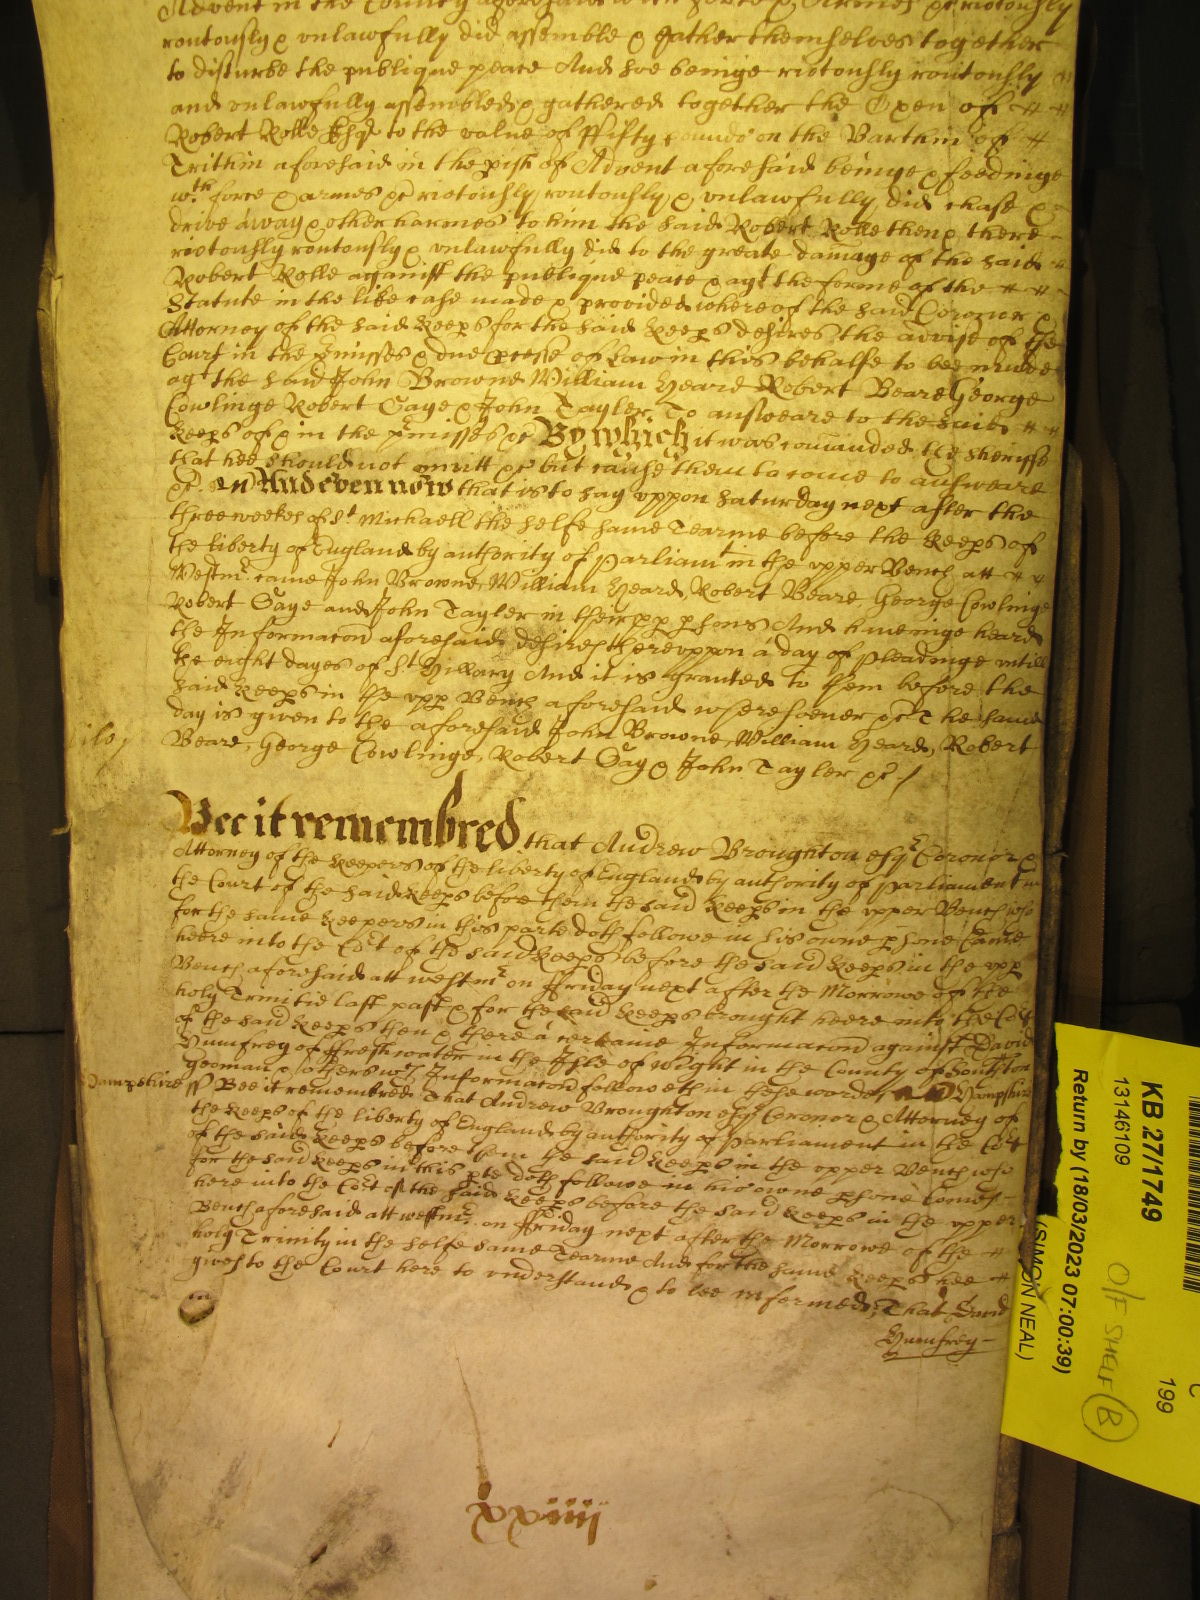 Advent in the County aforesaid with force & Armes &c riotously
routously & unlawfully did assemble & gather themselves together
to disturbe the publique peace And soe beinge riotously routously
and unlawfully assembled & gathered together the Oxen of
Robert Rolle Esqr to the value of ffifty pounds on the Barthin of
Trithin aforesaid in the pish of Advent aforesaid beinge & feedinge
wth force & armes &c riotously routously & unlawfully did chase &
drive away & other harmes to him the said Robert Rolle then & there
riotously routously & unlawfully did to the greate damage of the said
Robert Rolle against the publique peace & agt the forme of the
Statute in the like case made & provided whereof the said Coronor &
Attorney of the said Keeps for the said Keeps desires the advise of the
Court in the pmisses & due pcesse of Law in this behalfe to bee made
agt the said John Browne William Heard Robert Beare George
Cowlinge Robert Gaye & John Tayler To answeare to the said
Keeps of & in the pmisses &c By which it was comanded the Sheriffe
that hee should not omitt &c but cause them to come to answeare
&c And even now that is to say uppon Saturday next after the
three weekes of St Michaell the selfe same Tearme before the Keeps of
the liberty of England by authority of Parliamt in the upper Bench att
Westmr came John Browne, William Heard, Robert Beare, George Cowlinge
Robert Gaye and John Tayler in their pp psons And haveinge heard
the Informacon aforesaid desires thereuppon a day of pleadinge untill
the eight dayes of St Hillary And it is granted to them before the
said Keeps in the upp Bench aforesaid wheresoever &c The same
day is given to the aforesaid John Browne, William Heard, Robert
Beare, George Cowlinge, Robert Gay & John Tayler &c /
Bee it remembred that Andrew Broughton esqr Coronor &
Attorney of the Keepers of the liberty of England by authority of Parliament in
the Court of the said Keeps before them the said Keeps in the upper Bench who
for the same Keepers in this parte doth followe in his owne psone Came
heere into the Cort of the said Keeps before the said Keeps in the upp
Bench aforesaid att westmr on ffriday next after the Morrowe of the
holy Trinitie last past & for the said Keeps brought heere into the Cort
of the said Keeps then & there a certaine Informacon against David
Humfrey of ffreshwater in the Isle of Wight in the County of Southton
yeoman & others wch Informacon followeth in these wordes Hampshire
Hampshire ss Bee it remembred That Andrew Broughton esqr Coronor & Attorney of
the Keeps of the liberty of England by authority of Parliament in the Cort
of the said Keeps before them the said Keeps in the upper Bench who
for the said Keeps in this pte doth followe in his owne psone Comes
here into the Cort of the said Keeps before the said Keeps in the upper
Bench aforesaid att westmr on ffriday next after the Morrowe of the
holy Trinity in the selfe same Tearme And for the same Keeps hee
gives to the Court here to understand & to bee informed, That David
Humfrey
xxiiij
KB 27/1749
13146109
Return by (18/03/2023 07:00:39)
(SIMON NEAL)
C
199
O/F SHELF B